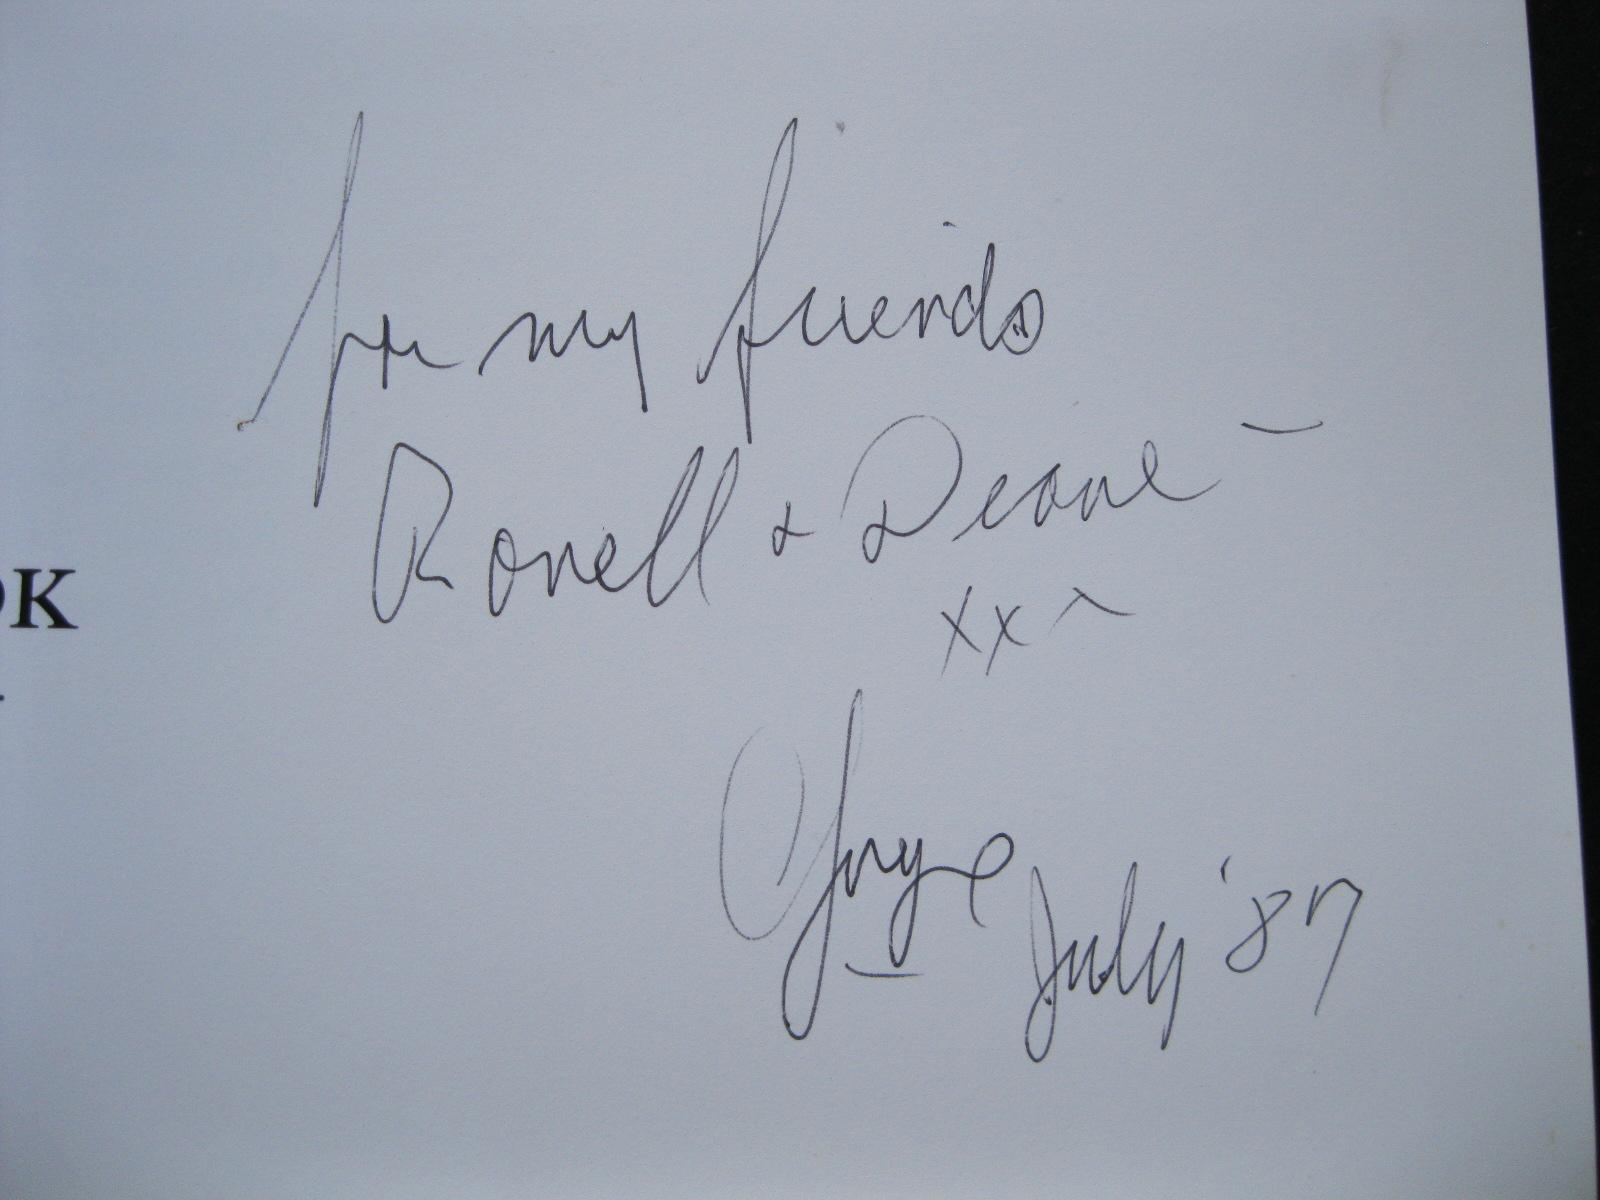 for my friends
Ronell & Deane –
xx
July '87
OK